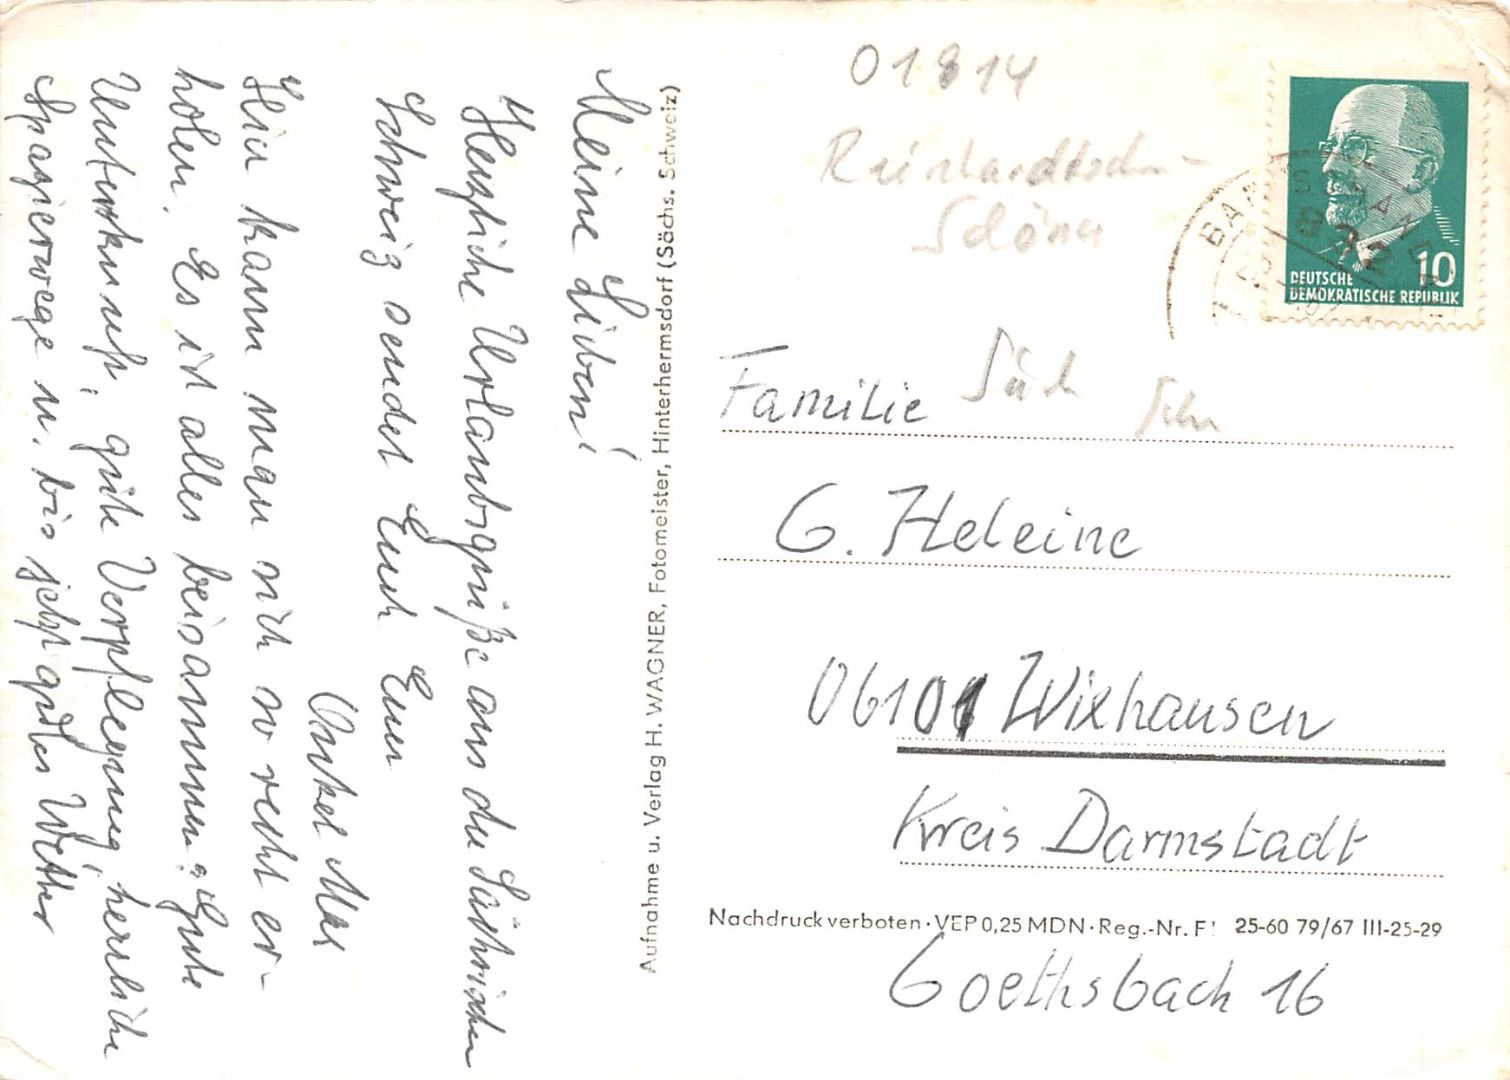 Meine Lieben!
Herzliche Urlaubsgrüße aus der Sächsischen
Schweiz sendet Euch Euer
Onkel Max
Hier kann man sich so recht er-
holen. Es ist alles beisammen: Gute
Unterkunft, gute Verpflegung, herrliche
Spazierwege u. bis jetzt gutes Wetter
Aufnahme u. Verlag H. WAGNER, Fotomeister, Hinterhermsdorf (Sächs. Schweiz)
01814
Reinhardtsdn-
Schöna
BAD SCHANDAU
832
10
DEUTSCHE
DEMOKRATISCHE REPUBLIK
Familie
G. Heleine
06101 Wixhausen
Kreis Darmstadt
Nachdruck verboten · VEP 0,25 MDN · Reg.-Nr. F 25-60 79/67 III-25-29
Goethsbach 16